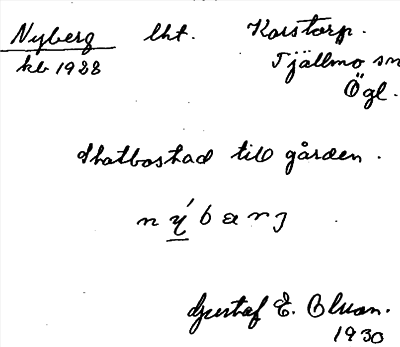 Nyberg lht. Korstorp.
kb 1928 Tjällmo sn
Ögl.
Statbostad till gården.
n ý b a r j
Gustaf E. Olson.
1930